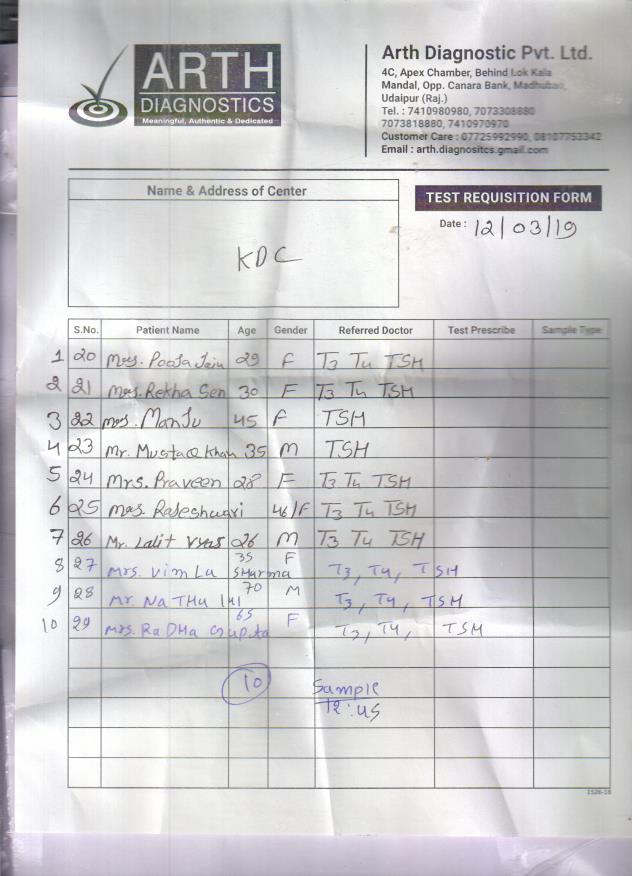 ARTH
DIAGNOSTICS
Meaningful, Authentic & Dedicated
Arth Diagnostic Pvt. Ltd.
4C, Apex Chamber, Behind Lok Kala
Mandal, Opp. Canara Bank, Madhuban,
Udaipur (Raj.)
Tel. : 7410980980, 7073308880
7073818880, 7410970970
Customer Care : 07725992990, 08107753342
Email : arth.diagnositcs.gmail.com
Name & Address of Center
KDC
TEST REQUISITION FORM
Date : 12/03/19
S.No. Patient Name Age Gender Referred Doctor Test Prescribe Sample Type
1 20 Mrs. Pooja Jain 29 F T3 T4 TSH
2 21 Mrs. Rekha Sen 30 F T3 T4 TSH
3 22 Mrs. Manju 45 F TSH
4 23 Mr. Mustaq Khan 35 M TSH
5 24 Mrs. Praveen 28 F T3 T4 TSH
6 25 Mrs. Rajeshwari 46/F T3 T4 TSH
7 26 Mr. Lalit Vyas 26 M T3 T4 TSH
8 27 Mrs. Vimla Sharma 35 F T3, T4, TSH
9 28 Mr. NaTHu lal 70 M T3, T4, TSH
10 29 Mrs. RaDHa Gupta 65 F T3, T4, TSH
10 Sample
12:45
1526-18